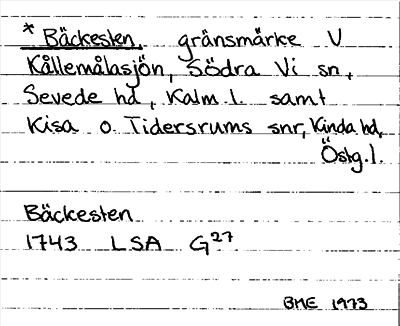 * Bäckesten, gränsmärke V
Kållemålasjön, Södra Vi sn,
Sevede hd, Kalm. l. samt
Kisa o. Tidersrums snr, Kinda hd,
Östg. l.
Bäckesten
1743 LSA G27
BME 1973